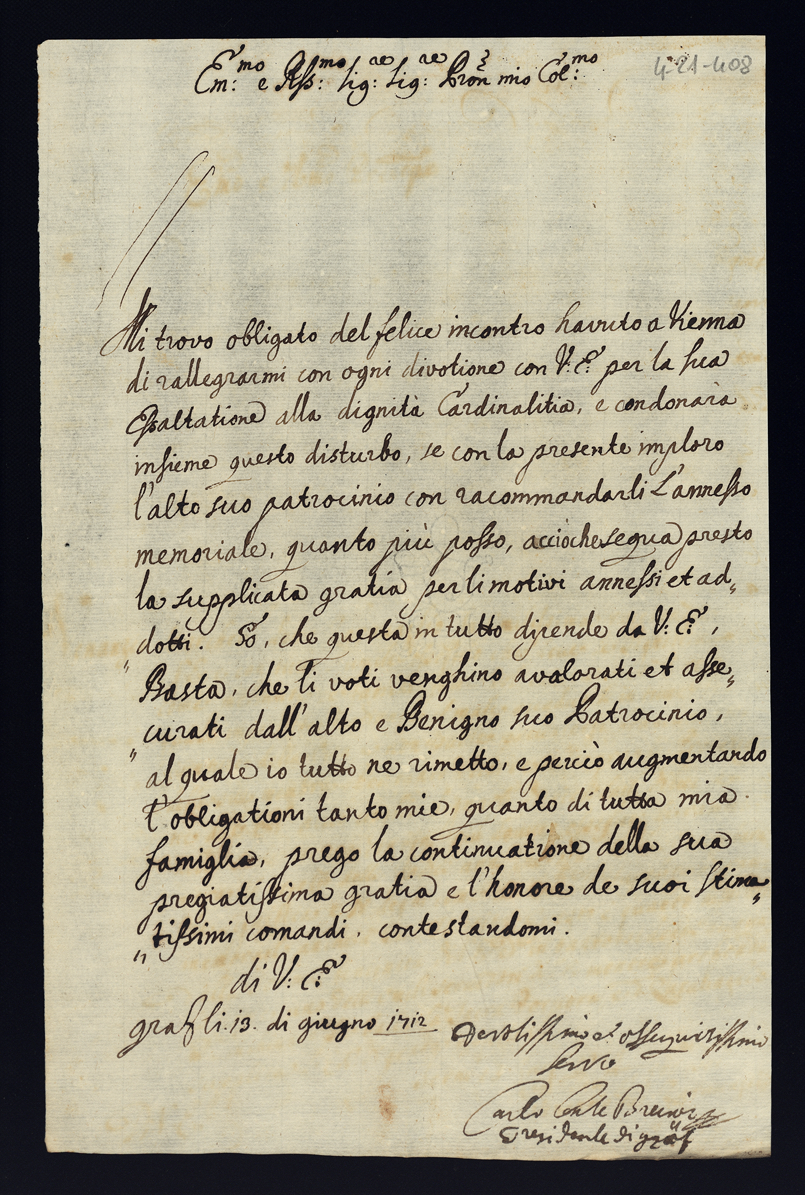 Em:mo e Rss:mo Sig:re Sig:re Pron mio Col:mo
4-21-408
Mi trovo obligato del felice incontro havuto a Vienna
di rallegrarmi con ogni divotione con V: E: per la sua
Esaltatione alla dignità Cardinalitia, e condonarà
insieme questo disturbo, se con la presente imploro
l'alto suo patrocinio con racommandarli L'annesso
memoriale, quanto più posso, acciòche segua presto
la supplicata gratia per li motivi annessi et ad„
dotti. Sò, che questa in tutto dipende da V: E:,
„ Basta, che li voti venghino avalorati et asse„
curati dall'alto e Benigno suo Patrocinio,
„ al quale io tutto ne rimetto, e perciò augmentando
l'obligationi tanto mie, quanto di tutta mia
famiglia, prego la continuatione della sua
pregiatissima gratia e l'honore de suoi stima„
„ tissimi comandi, contestandomi.
di V: E:
Graz li 13. di giugno 1712
Devotissimo et ossequiosissimo
Servo
Carlo Conte Breiner
Presidente di